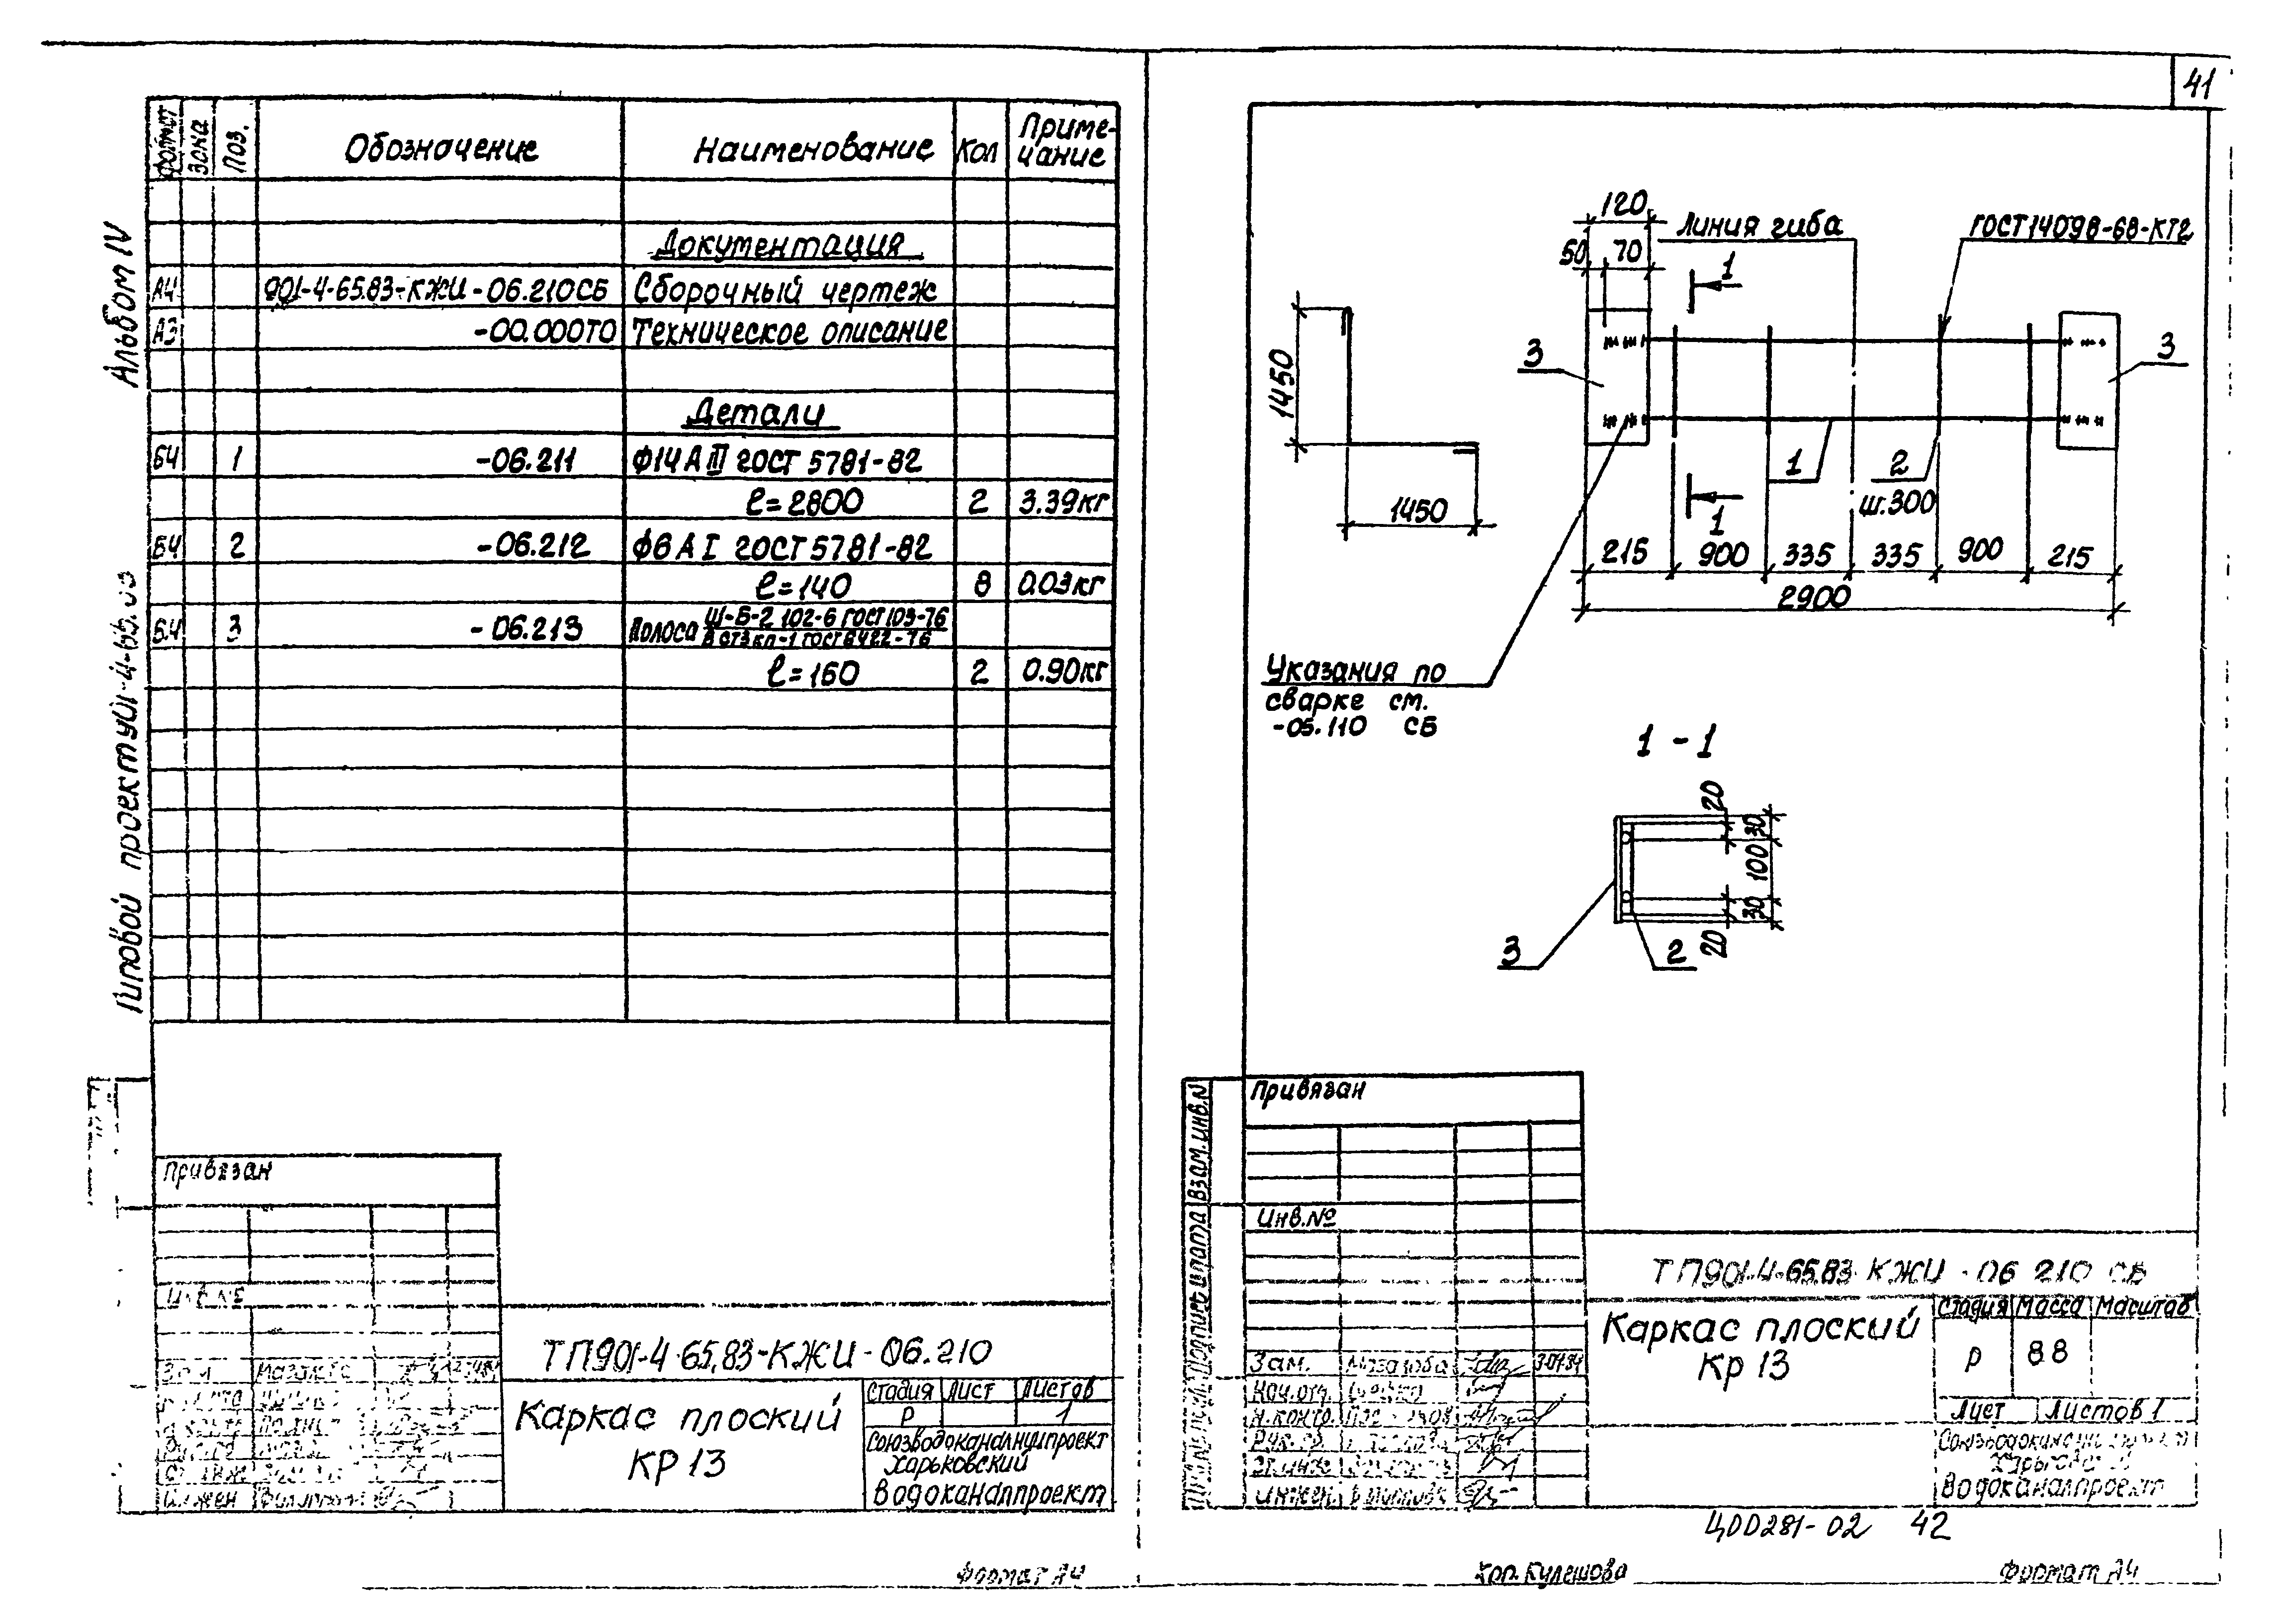 41
Альбом IV
Типовой проект
Формат
Зона
Поз.
Обозначение
Наименование
Кол
Приме-
чание
Документация
А4 901-4-65.83-КЖИ-06.210СБ Сборочный чертеж
А3 -00.000ТО Техническое описание
Детали
БЧ 1 -06.211 Ф14АIII ГОСТ 5781-82
ℓ=2800 2 3.39кг
БЧ 2 -06.212 Ф6АI ГОСТ 5781-82
ℓ=140 8 0.03кг
БЧ 3 -06.213 Полоса Ш-Б-2 102-6 ГОСТ 103-76
ВСт3кп-1 ГОСТ 6422-76
ℓ=160 2 0.90кг
Привязан
Инв №
ТП901-4-65.83-КЖИ-06.210
Каркас плоский
КР 13
Стадия Лист Листов
Р 1
Союзводоканалниипроект
Харьковский
Водоканалпроект
Инжен
Формат А4
120
50 70
Линия гиба
ГОСТ 14098-68-КТ2
1
3
3
1450
1450
1
2
ш.300
1
215 900 335 335 900 215
2900
Указания по
сварке см.
-05.110 СБ
1-1
20
30
100
30
20
3
2
Привязан
Взам.инв.N
Подпись и дата
Инв.№
ТП901-4-65.83-КЖИ-06 210 СБ
Каркас плоский
Кр 13
Стадия Масса Масштаб
Р 8.8
Лист Листов 1
Водоканалпроект
Зам.
Нач.отд.
Н.контр.
Рук.гр.
Ст.инж
Инжен.
Ц00281-02 42
Кор. Кулешова
Формат А4